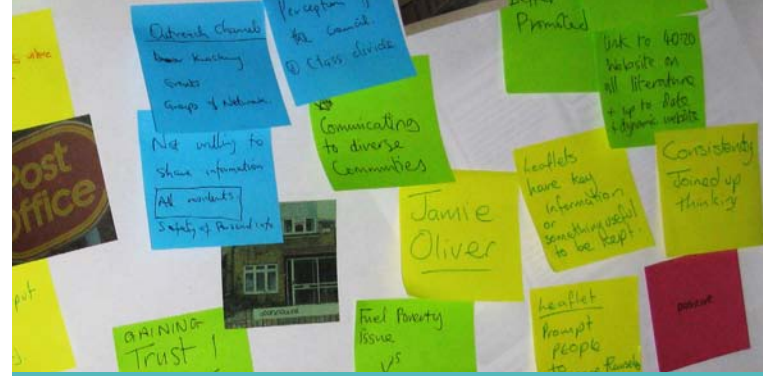 Outreach Channels
Events
Groups & Networks
Perception of
the council.
① Class divide.
Promoted
link to 4020
Website on
all literature
+ up to date
+ dynamic website
Post
Office
Not willing to
share information
All residents.
Safety of Personal info
Comunicating
to diverse
Communities
Jamie
Oliver
Leaflets
have key
information
or
something useful
to be kept.
Consistency
Joined up
thinking
put
GAINING
Trust !
Fuel Poverty
Issue
vs
Leaflet
Prompt
people
to